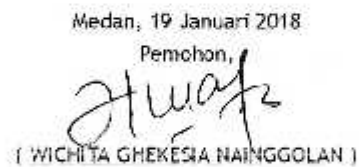 Medan, 19 Januari 2018
Pemohon,
( WICHITA GHEKESIA NAINGGOLAN )